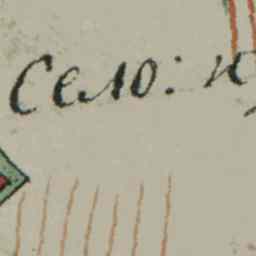 Село: